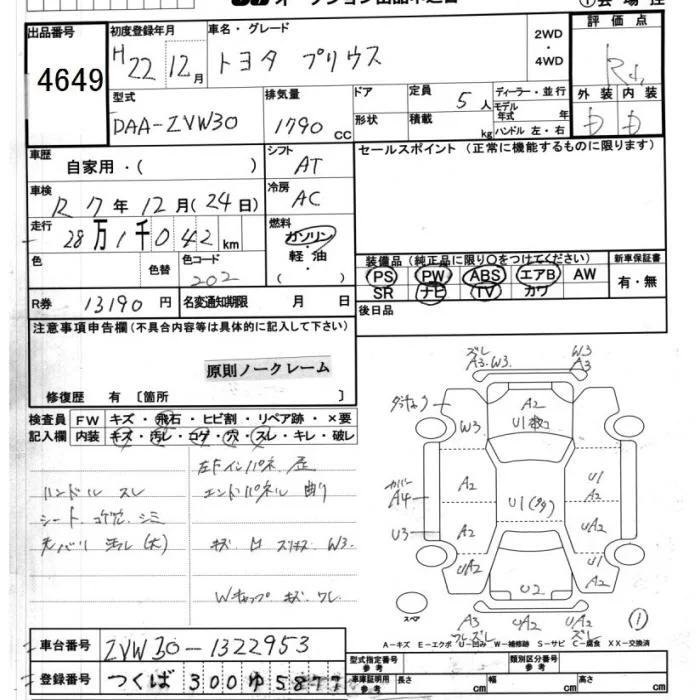 出品番号
4649
初度登録年月
H 22 12月
車名・グレード
トヨタ プリウス
2WD
・
4WD
評価点
外装 内装
型式
DAA-ZVW30
排気量
1790 cc
ドア
形状
定員
5人
積載
kg
ディーラー・並行
モデル
年式 年
ハンドル 左・右
車歴
自家用・( )
シフト
AT
セールスポイント (正常に機能するものに限ります)
車検
R 7年12月(24日)
冷房
AC
走行
28万1千042 km
燃料
ガソリン
・
軽油
・
( )
色
色替
色コード
202
装備品 (純正品に限り○をつけてください)
PS PW ABS エアB AW
SR ナビ TV カワ
新車保証書
有・無
R券 13190円
名変通知期限 月 日
後日品
注意事項申告欄(不具合内容等は具体的に記入して下さい)
原則ノークレーム
修復歴 有 [箇所 ]
検査員
記入欄
FW キズ・飛石・ヒビ割・リペア跡・×要
内装 キズ・汚レ・コゲ・穴・スレ・キレ・破レ
左Fインパネ 歪
ハンドル スレ エンドパネル 曲り
シート コゲ穴 シミ
W3.
Wキャップ キズ ワレ
ズレ
A3.W3.
W3
A3
W3
A2
U1
カバー
A4
A2
U1
U1
A2
U3
A2
UA2
UA2
U2
U1
A2
スペア
A3
UA2
UA2
ズレ
①
A-キズ E-エクボ U-凹み W-補修跡 S-サビ C-腐食 XX-交換済
車台番号 ZVW30-1322953
登録番号 つくば 300 ゆ 5877
型式指定番号
参考
類別区分番号
参考
車庫証明用
参考
長さ cm 幅 cm 高さ cm